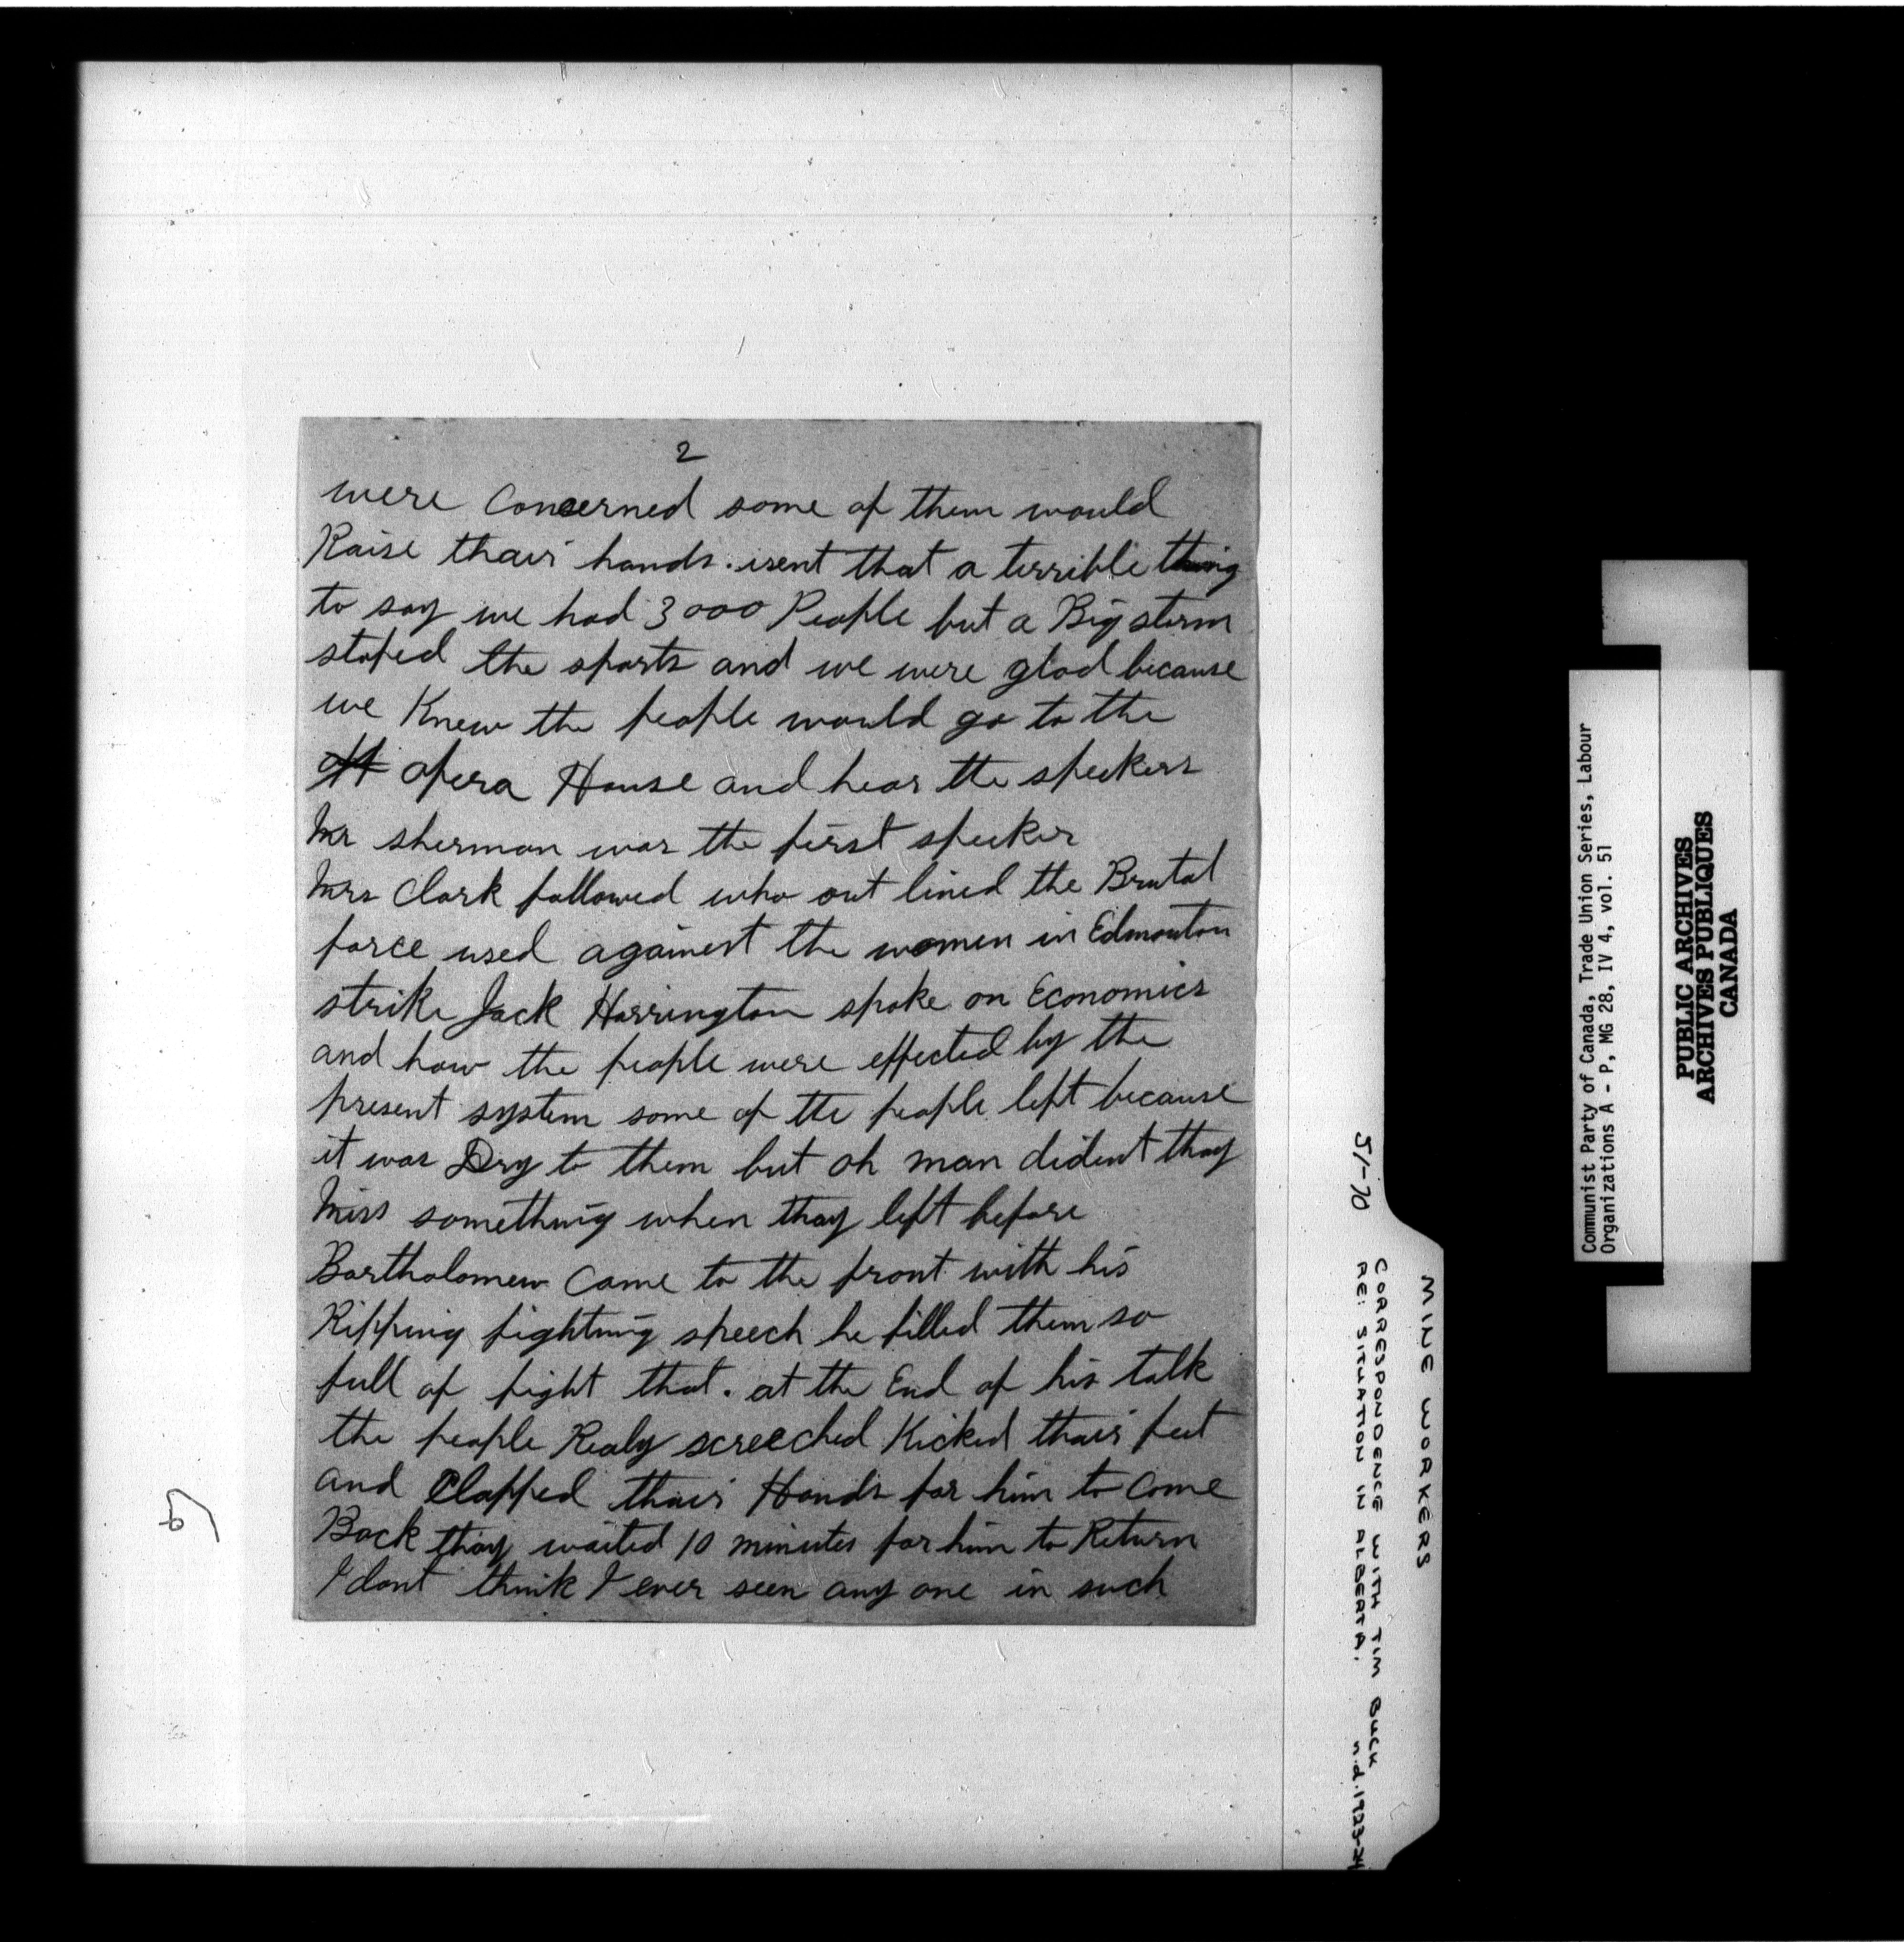 2
were concerned some of them would
Raise thair hands. isent that a terrible thing
to say we had 3000 People but a Big storm
stoped the sports and we were glad because
we Knew the people would go to the
opera House and hear the speekers
Mr sherman was the first speeker
Mrs Clark followed who out lined the Brutal
force used against the women in Edmonton
strike Jack Harrington spoke on Economics
and how the people were effected by the
present system some of the people left because
it was Dry to them but oh man dident thay
Miss something when thay left before
Bartholomew came to the front with his
Ripping fighting speech he filled them so
full of fight that. at the End of his talk
the people Realy screeched Kicked thair feet
and Clapped thair Hands for him to Come
Back thay waited 10 minutes for him to Return
I dont think I ever seen any one in such
51-70
MINE WORKERS
CORRESPONDENCE WITH TIM BUCK
RE: SITUATION IN ALBERTA. n.d. 1923-24
Communist Party of Canada, Trade Union Series, Labour
Organizations A - P, MG 28, IV 4, vol. 51
PUBLIC ARCHIVES
ARCHIVES PUBLIQUES
CANADA